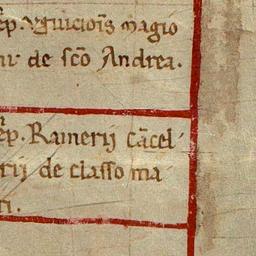 ep. Uguiciōis magio
de sc̄o Andrea.
ep. Rainerij cācel
rij de classo ma
ri.